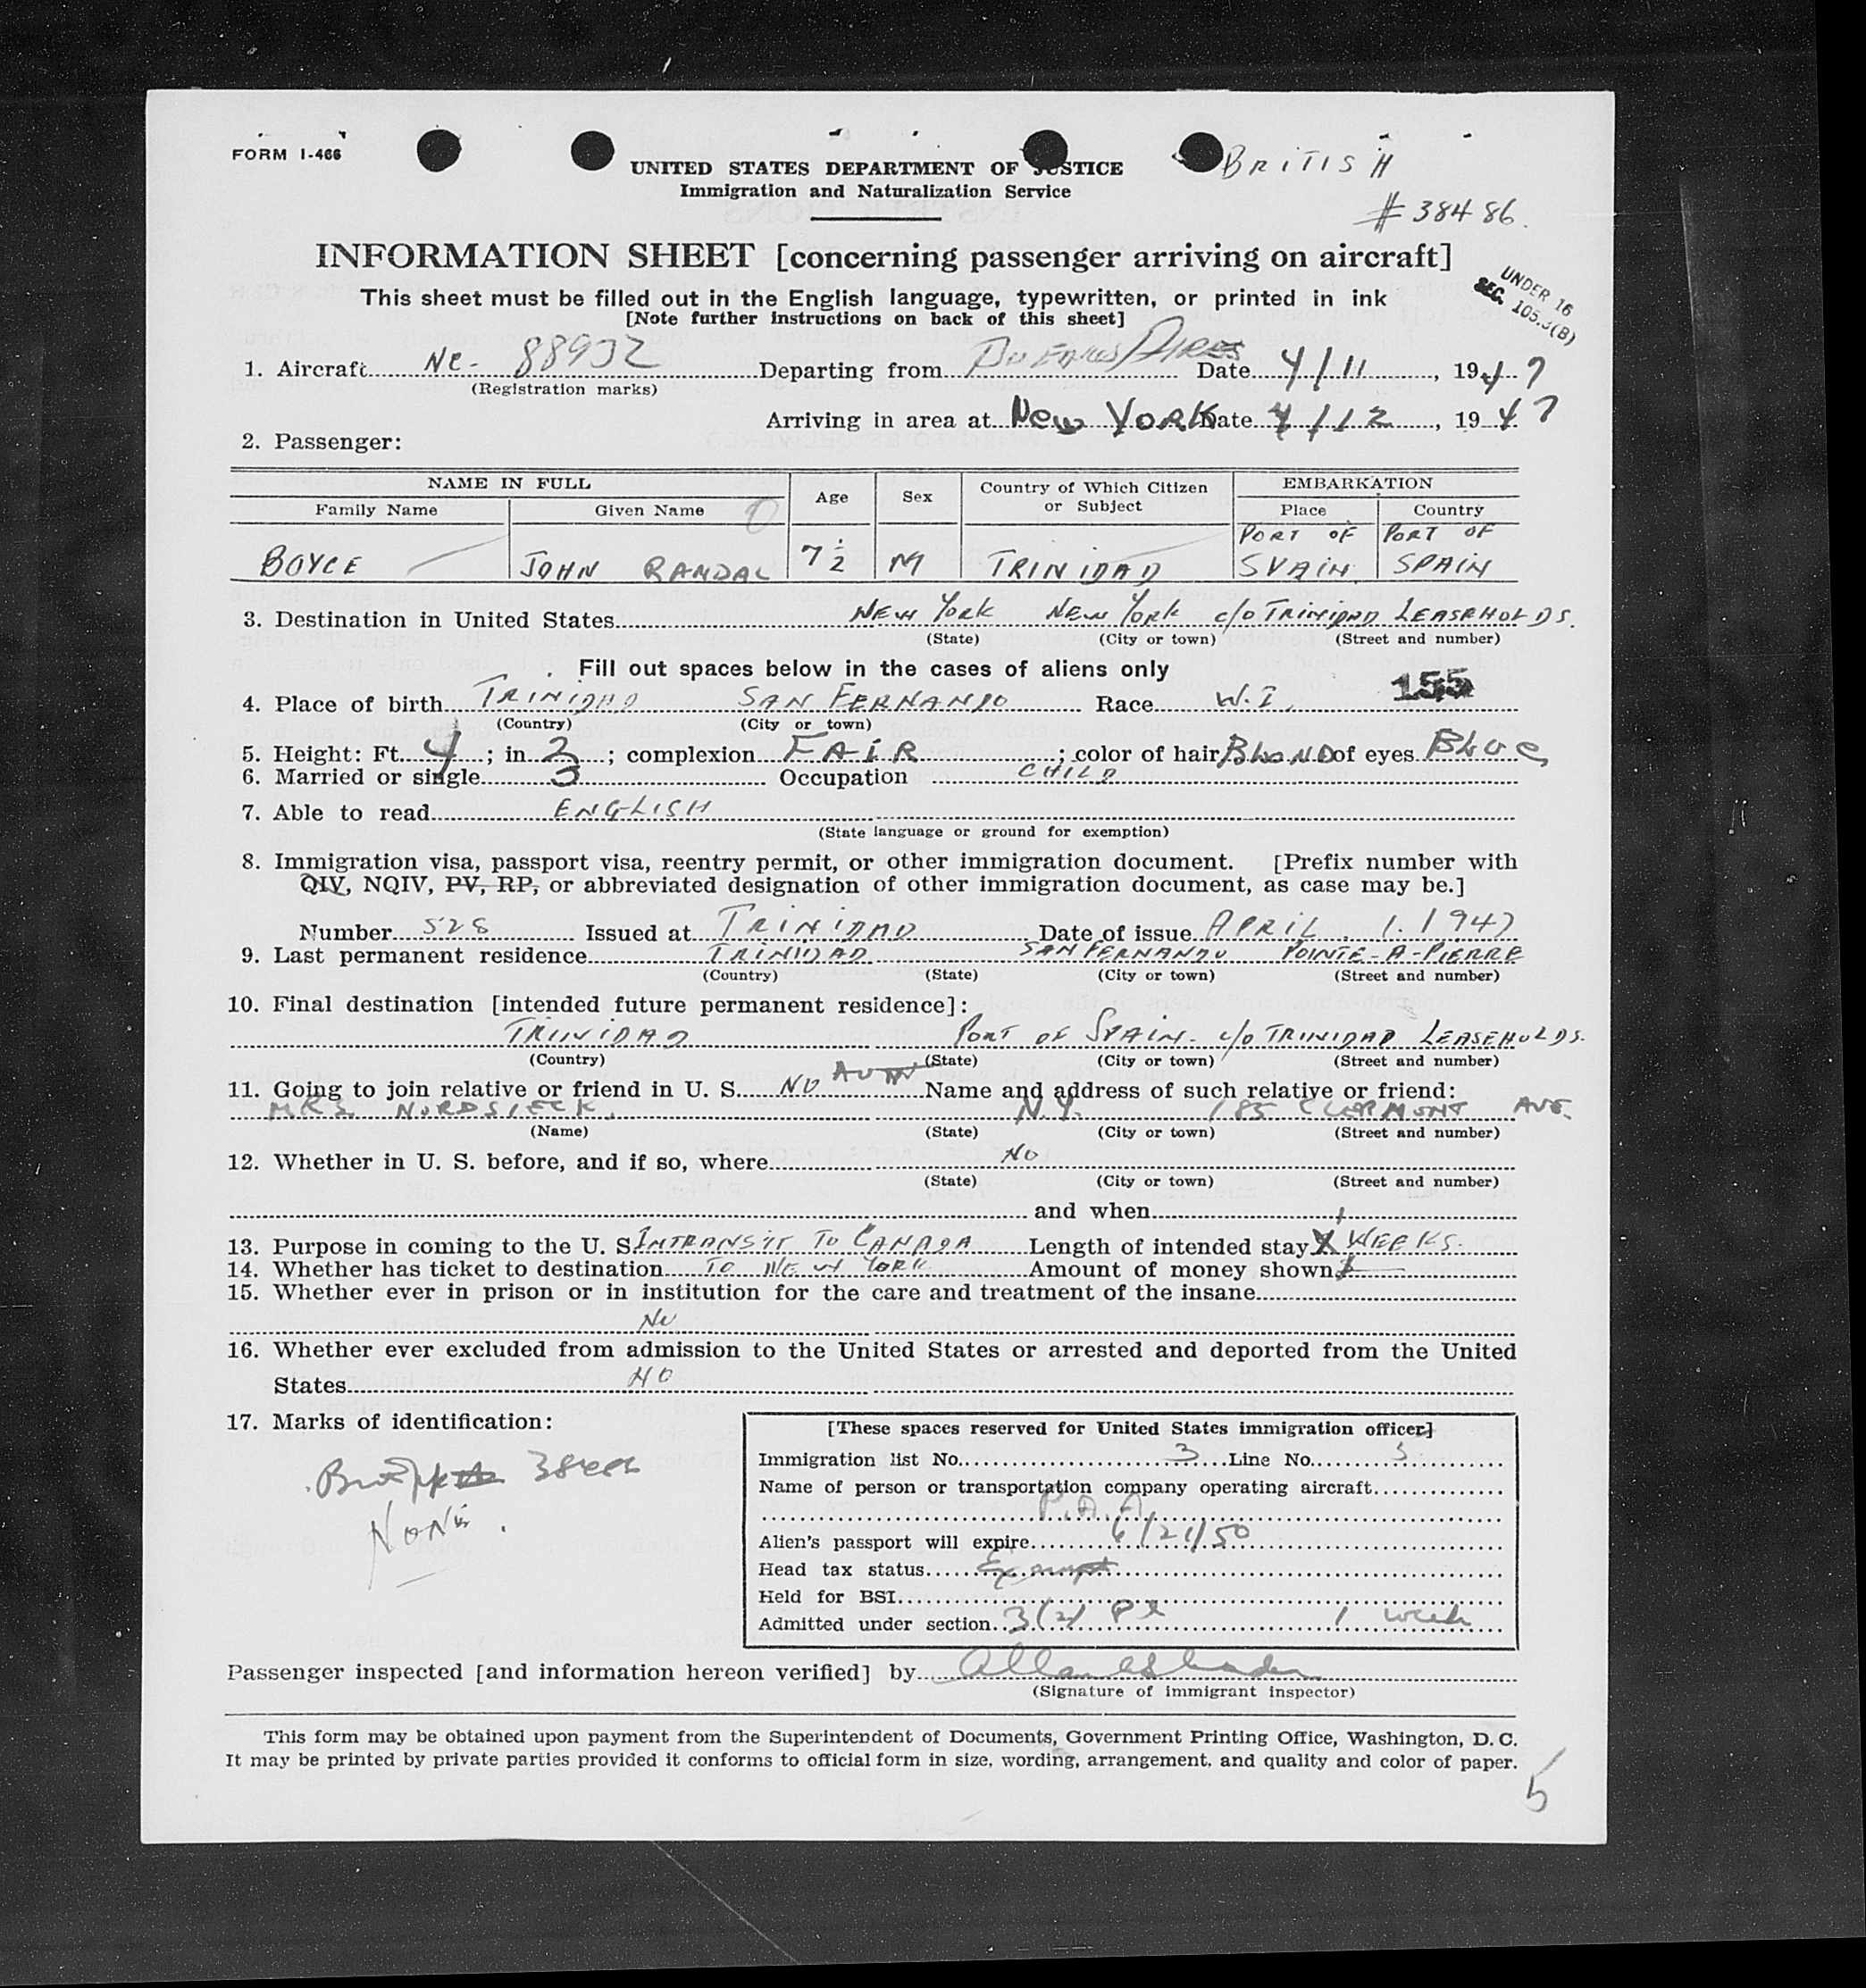 FORM I-466
UNITED STATES DEPARTMENT OF JUSTICE
Immigration and Naturalization Service
BRITISH
# 38486.
INFORMATION SHEET [concerning passenger arriving on aircraft]
This sheet must be filled out in the English language, typewritten, or printed in ink
[Note further instructions on back of this sheet]
UNDER 16
SEC. 105.3(B)
1. Aircraft NC- 88932 Departing from BUENOS AIRES Date 4/11, 1947
(Registration marks)
Arriving in area at New York Date 4/12, 1947
2. Passenger:
NAME IN FULL Age Sex Country of Which Citizen or Subject EMBARKATION
Family Name Given Name Place Country
BOYCE JOHN RANDAL 7 1/2 M TRINIDAD PORT OF SPAIN PORT OF SPAIN
3. Destination in United States NEW YORK NEW YORK c/o TRINIDAD LEASEHOLDS.
(State) (City or town) (Street and number)
Fill out spaces below in the cases of aliens only
155
4. Place of birth TRINIDAD SAN FERNANDO Race W.I.
(Country) (City or town)
5. Height: Ft. 4; in 3; complexion FAIR; color of hair BLOND of eyes BLUE
6. Married or single S Occupation CHILD
7. Able to read ENGLISH
(State language or ground for exemption)
8. Immigration visa, passport visa, reentry permit, or other immigration document. [Prefix number with
QIV, NQIV, PV, RP, or abbreviated designation of other immigration document, as case may be.]
Number 528 Issued at TRINIDAD Date of issue APRIL. 1. 1947
9. Last permanent residence TRINIDAD SAN FERNANDO POINTE-A-PIERRE
(Country) (State) (City or town) (Street and number)
10. Final destination [intended future permanent residence]:
TRINIDAD PORT OF SPAIN. c/o TRINIDAD LEASEHOLDS.
(Country) (State) (City or town) (Street and number)
11. Going to join relative or friend in U. S. NO AUNT Name and address of such relative or friend:
MRS. NORDSIECK. N.Y. 185 CLERMONT AVE.
(Name) (State) (City or town) (Street and number)
12. Whether in U. S. before, and if so, where NO
(State) (City or town) (Street and number)
and when
13. Purpose in coming to the U. S. INTRANSIT TO CANADA Length of intended stay 1 WEEKS.
14. Whether has ticket to destination TO NEW YORK Amount of money shown $
15. Whether ever in prison or in institution for the care and treatment of the insane
No
16. Whether ever excluded from admission to the United States or arrested and deported from the United
States NO
17. Marks of identification:
NONE.
[These spaces reserved for United States immigration officer]
Immigration list No. 3 Line No. 5
Name of person or transportation company operating aircraft
P.A.A.
Alien's passport will expire 6/21/50
Head tax status Exempt
Held for BSI
Admitted under section 3(2) 1 week
Passenger inspected [and information hereon verified] by
(Signature of immigrant inspector)
This form may be obtained upon payment from the Superintendent of Documents, Government Printing Office, Washington, D. C.
It may be printed by private parties provided it conforms to official form in size, wording, arrangement, and quality and color of paper.
5